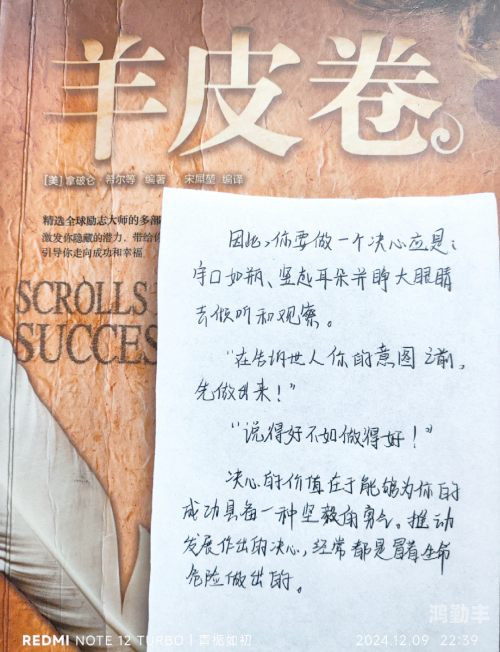 羊皮卷
[美] 拿破仑·希尔等 编著 宋犀堃 编译
精选全球励志大师的多部
激发你隐藏的潜力,带给你
引导你走向成功和幸福
SCROLLS
SUCCES
因此,你要做一个决心应是:
守口如瓶、竖起耳朵并睁大眼睛
去倾听和观察。
“在告诉世人你的意图之前,
先做出来!”
“说得好不如做得好!”
决心的价值在于能够为你的
成功具备一种坚毅的勇气。推动
发展作出的决心,经常都是冒着生命
危险做出的。
鸿勤丰
REDMI NOTE 12 TURBO | 青栀如初
2024.12.09 22:39